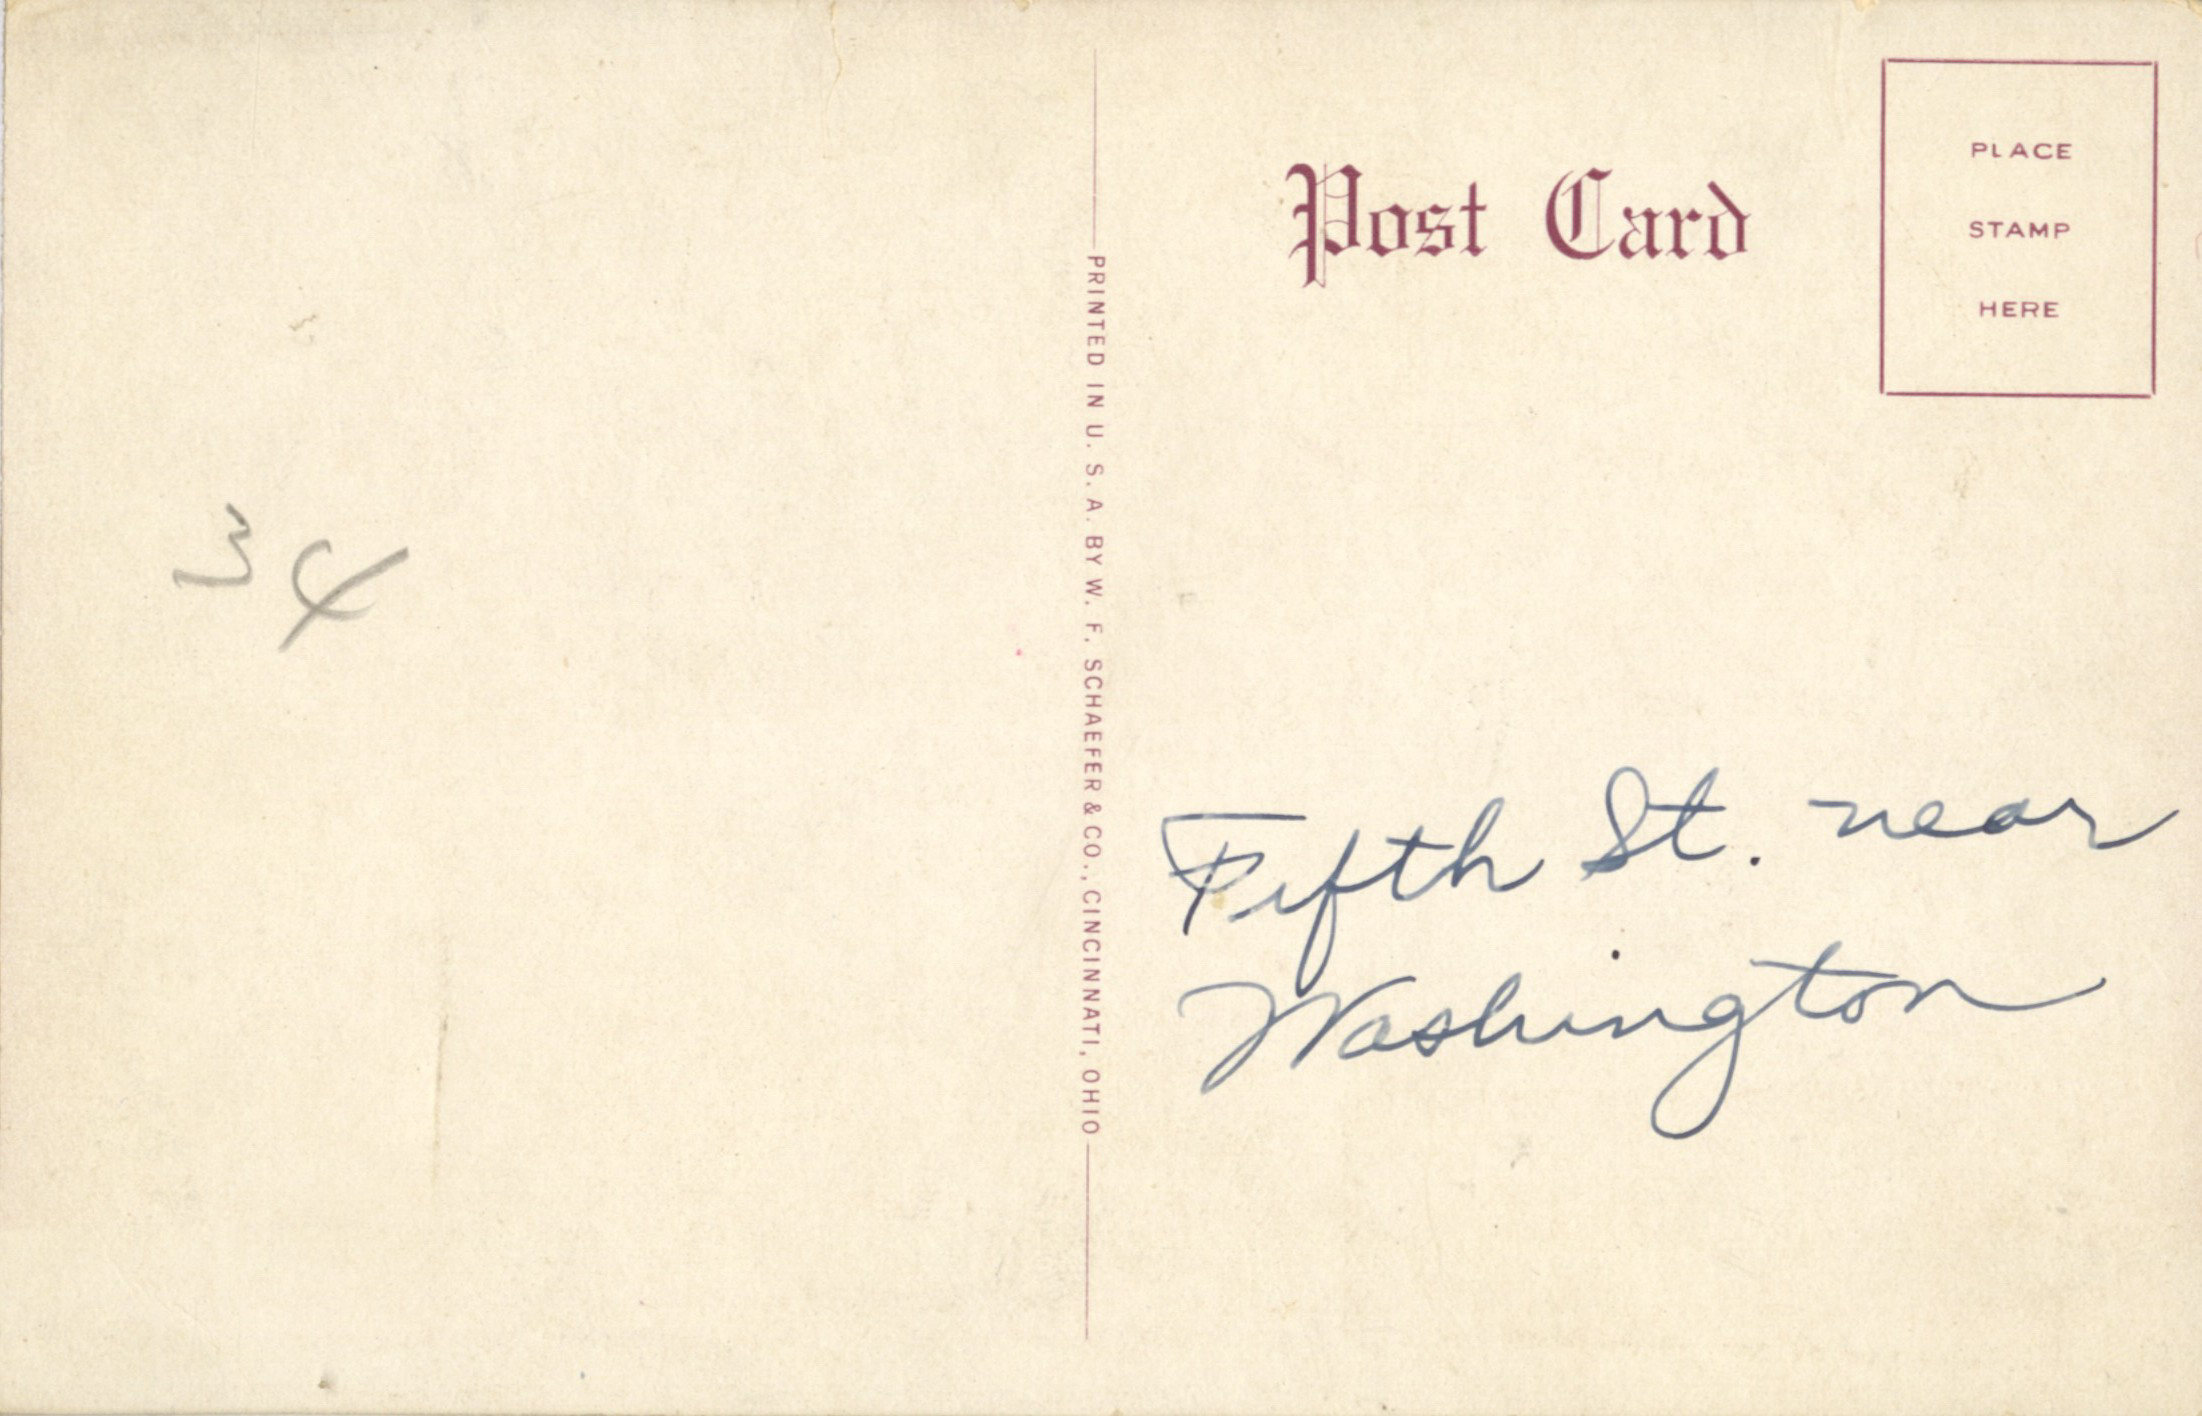 34
PRINTED IN U. S. A. BY W. F. SCHAEFER & CO., CINCINNATI, OHIO
Post Card
PLACE
STAMP
HERE
Fifth St. near
Washington